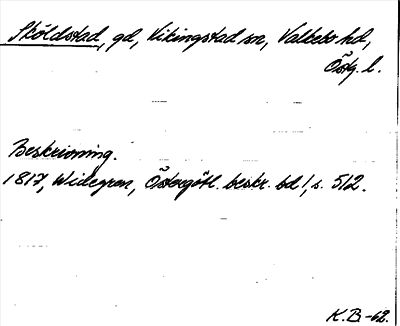 Sköldstad, gd, Vikingstad sn, Valkebo hd,
Östg. l.
Beskrivning.
1817, Widegren, Östergötl. beskr. bd 1, s. 512.
K.B.-62.